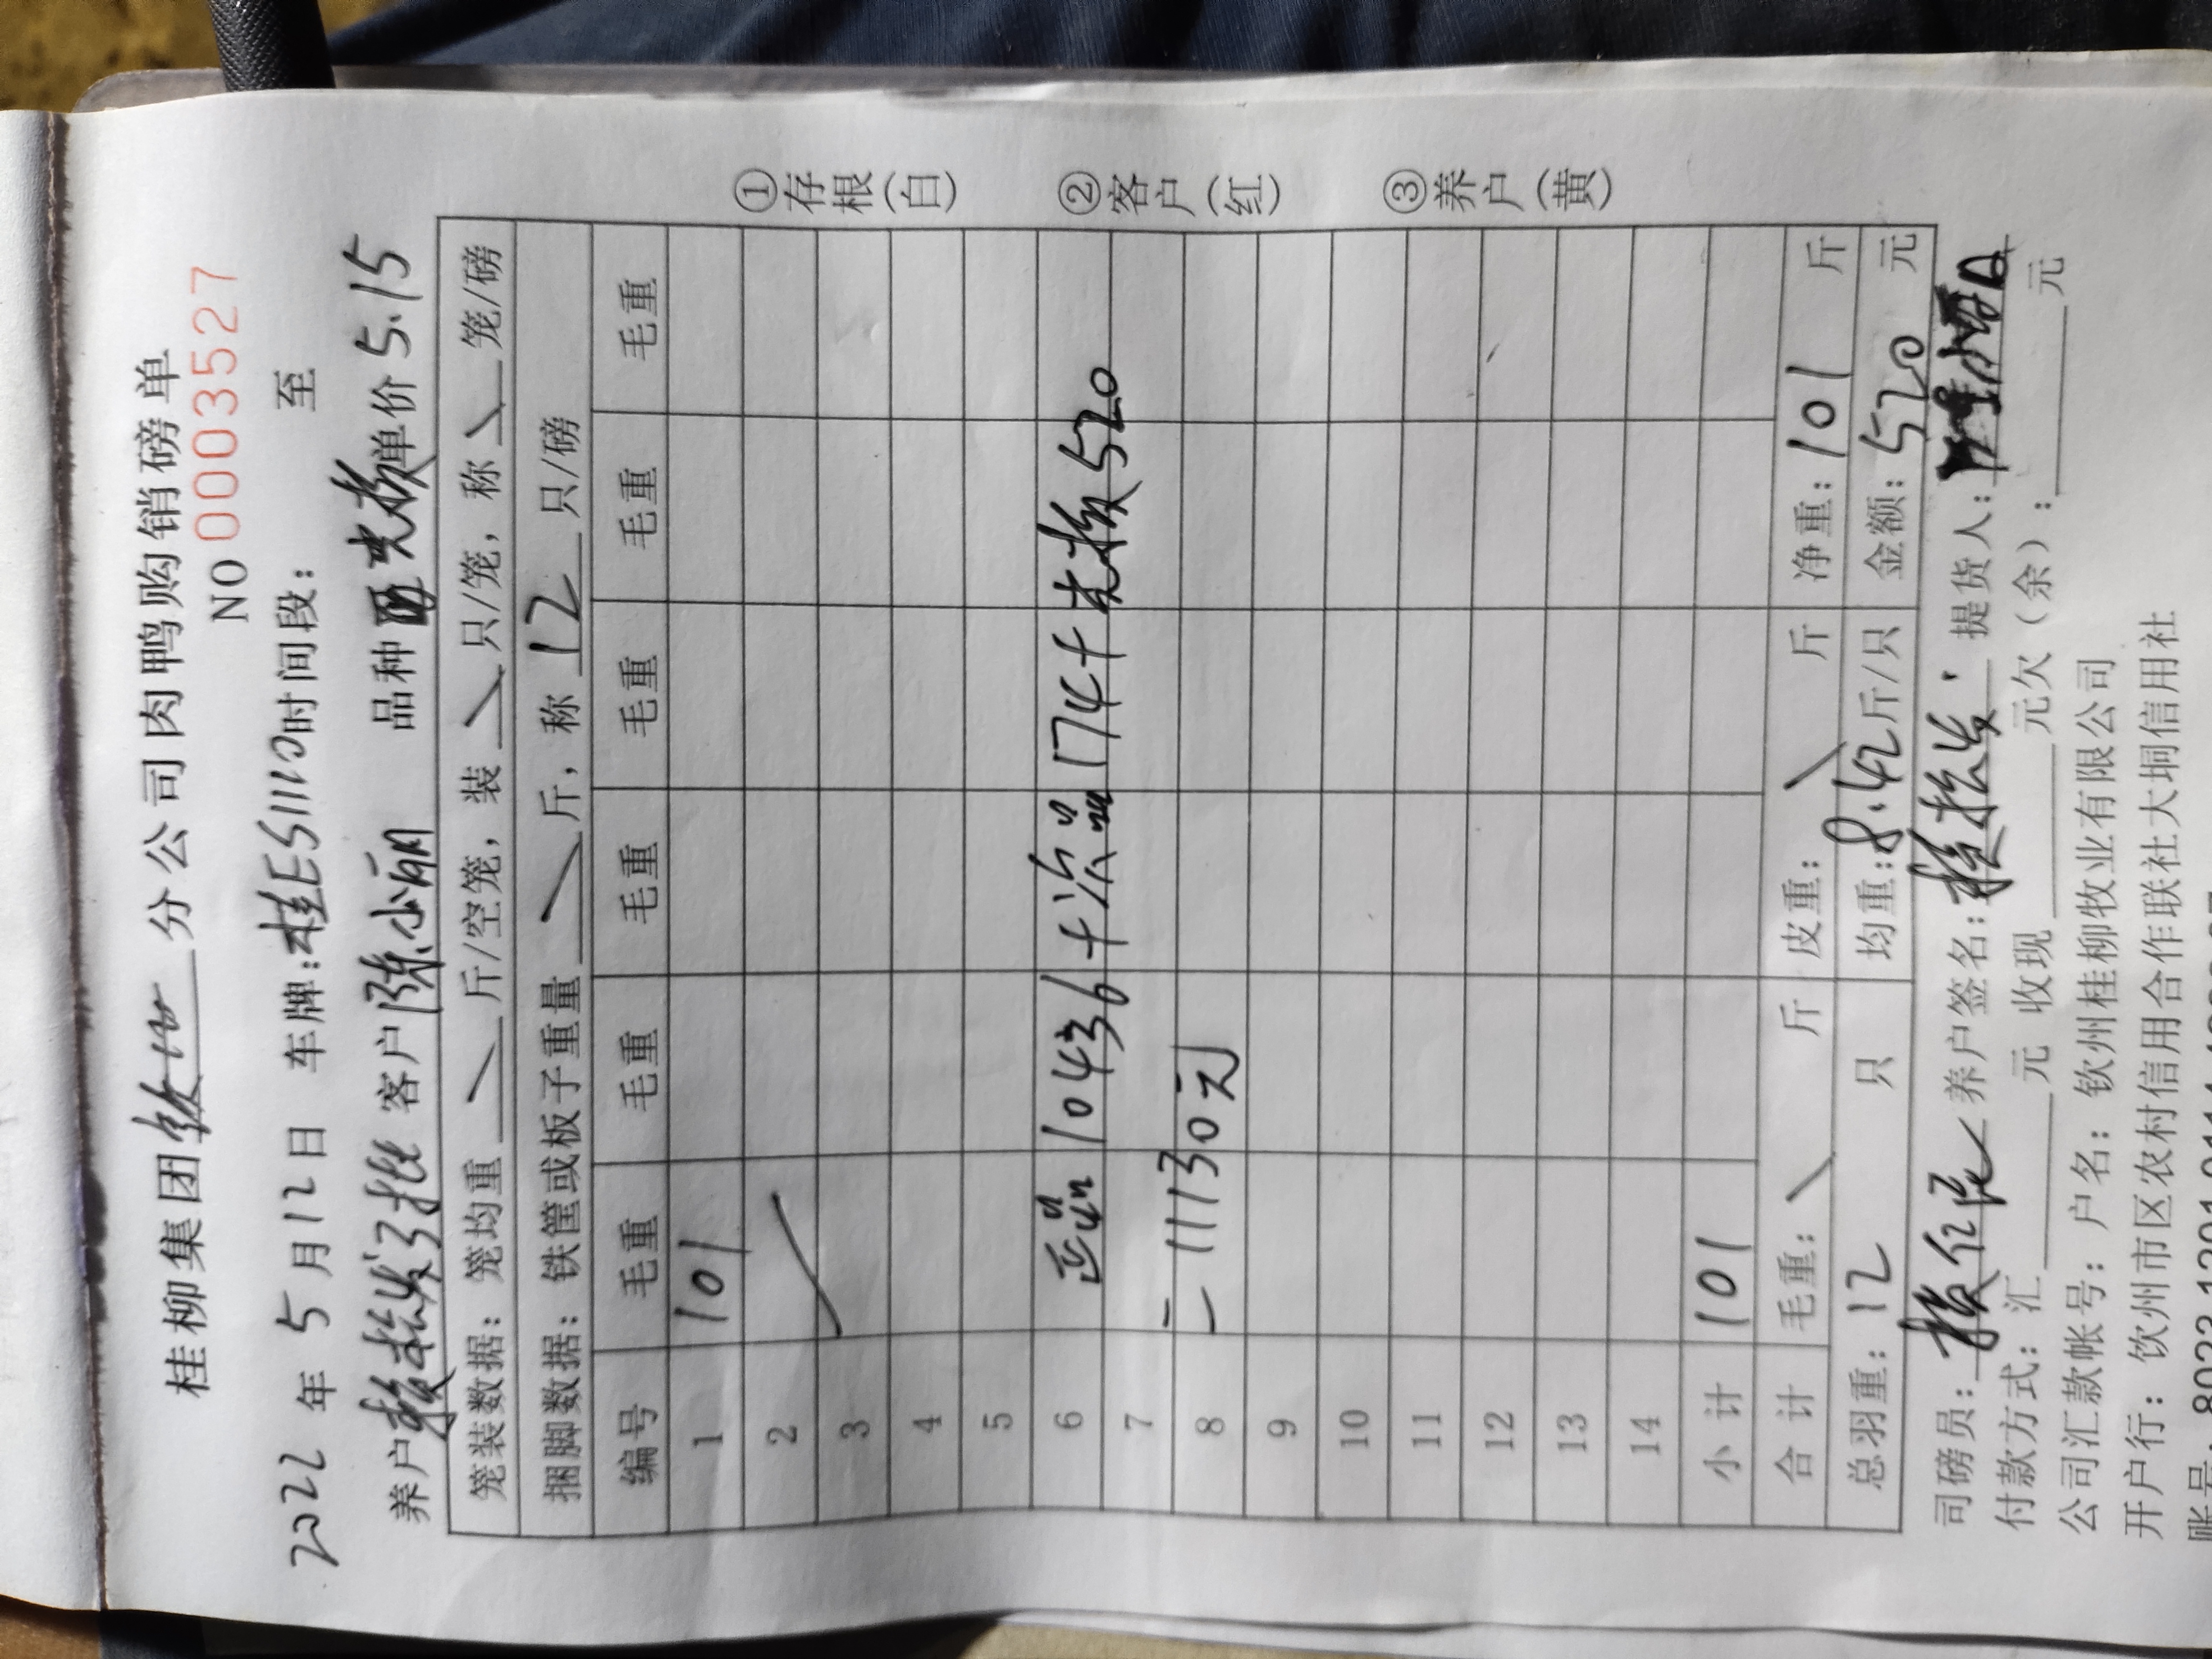 桂柳集团 分公司肉鸭购销磅单
NO 0003527
2022 年 5 月 12 日 车牌:桂ES1110 时间段: 至
养户 客户 陈小丽 品种 单价 5.15
笼装数据: 笼均重 斤/空笼, 装 只/笼, 称 笼/磅
捆脚数据: 铁筐或板子重量 斤, 称 12 只/磅
编号 毛重 毛重 毛重 毛重 毛重 毛重
1 101
2
3
4
5
6 正品 10436+次品174+ 520
7
8 =11130元
9
10
11
12
13
14
小计 101
合计 毛重: 斤 皮重: 斤 净重: 101 斤
总羽重: 12 只 均重: 8.42 斤/只 金额: 520 元
司磅员: 养户签名: 提货人:
付款方式: 汇 元 收现 元欠(余): 元
公司汇款帐号: 户名: 钦州桂柳牧业有限公司
开户行: 钦州市区农村信用合作联社大垌信用社
①存根(白)
②客户(红)
③养户(黄)